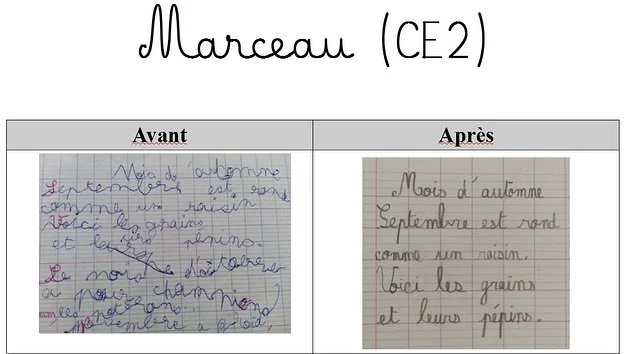 Marceau (CE2)
Avant
Après
Mois d'automne
Septembre est rond
comme un raisin
Voici les grains
et leurs pépins.
Le mois d'octobre
a pour champions
les
Novembre a froid,
Mois d'automne
Septembre est rond
comme un raisin.
Voici les grains
et leurs pépins.